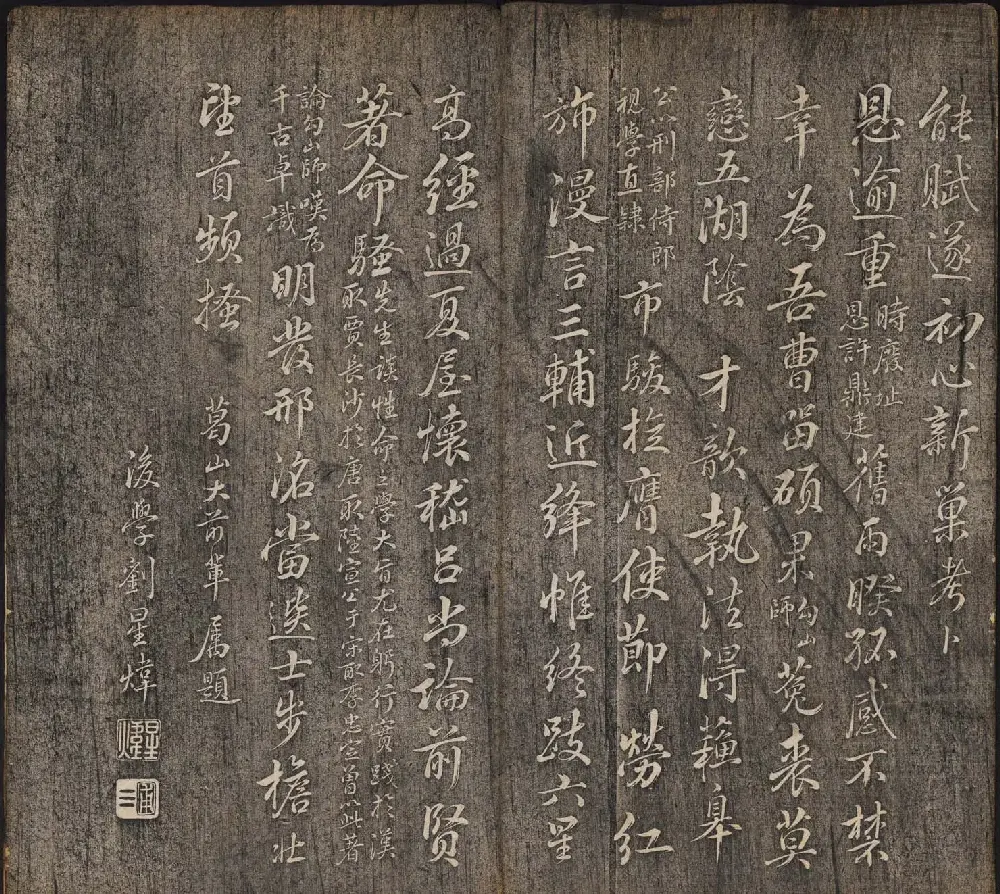 能賦遂初心新巢考卜
恩逾重時廢址恩許鼎建舊雨睽孤感不禁
幸為吾曹留碩果勾山師菟裘莫
戀五湖陰 才歌執法得蘓皋
公以刑部侍郎視學直隸市駿掄膺使節勞紅
斾漫言三輔近絳帷終跂六星
高經過夏屋懷嵇呂尚論前賢
著命騷先生談性命之學大旨尤在躬行實踐於漢取賈長沙於唐取陸宣公于宋取李忠定曾以此著
論勾山師嘆為千古卓識明發邢洺當送士步檐壯
望首頻搔 葛山大前輩属題
後學劉星煒
星煒
圃三